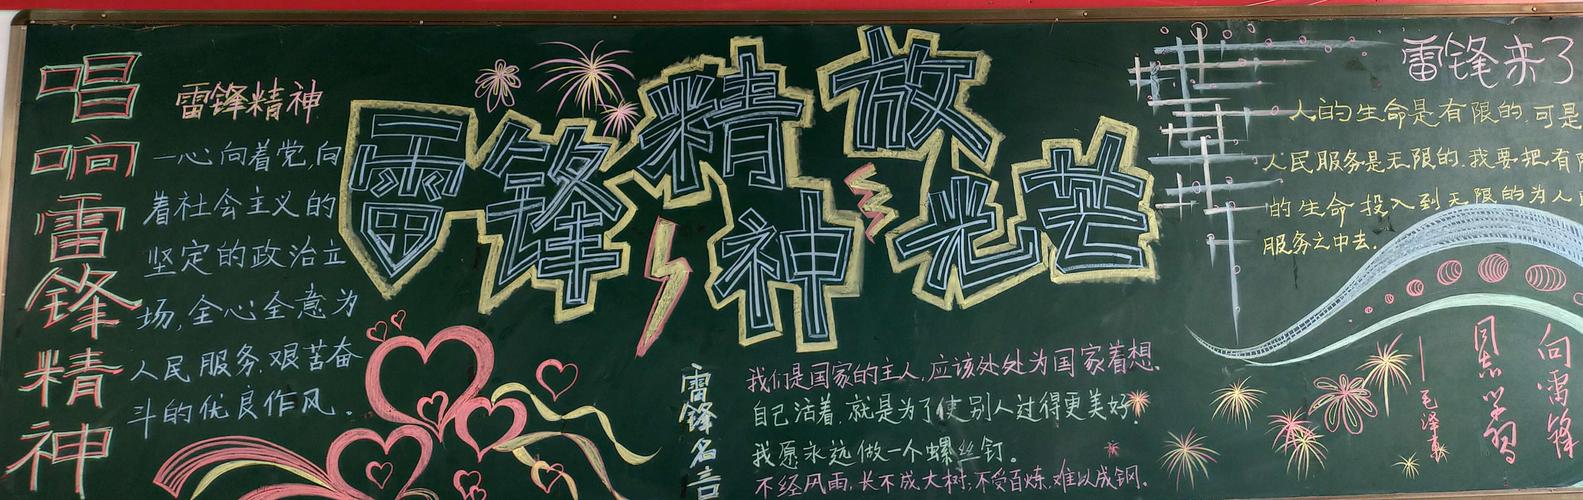 唱响雷锋精神
雷锋精神
一心向着党,向
着社会主义的
坚定的政治立
场,全心全意为
人民服务.艰苦奋
斗的优良作风.
雷锋精神放光芒
雷锋名言
我们是国家的主人,应该处处为国家着想.
自己活着,就是为了使别人过得更美好
我愿永远做一个螺丝钉。
不经风雨,长不成大树;不受百炼,难以成钢.
雷锋来了
人的生命是有限的.可是
人民服务是无限的.我要把有
的生命投入到无限的为人
服务之中去.
向雷锋
同志学习
—毛泽东